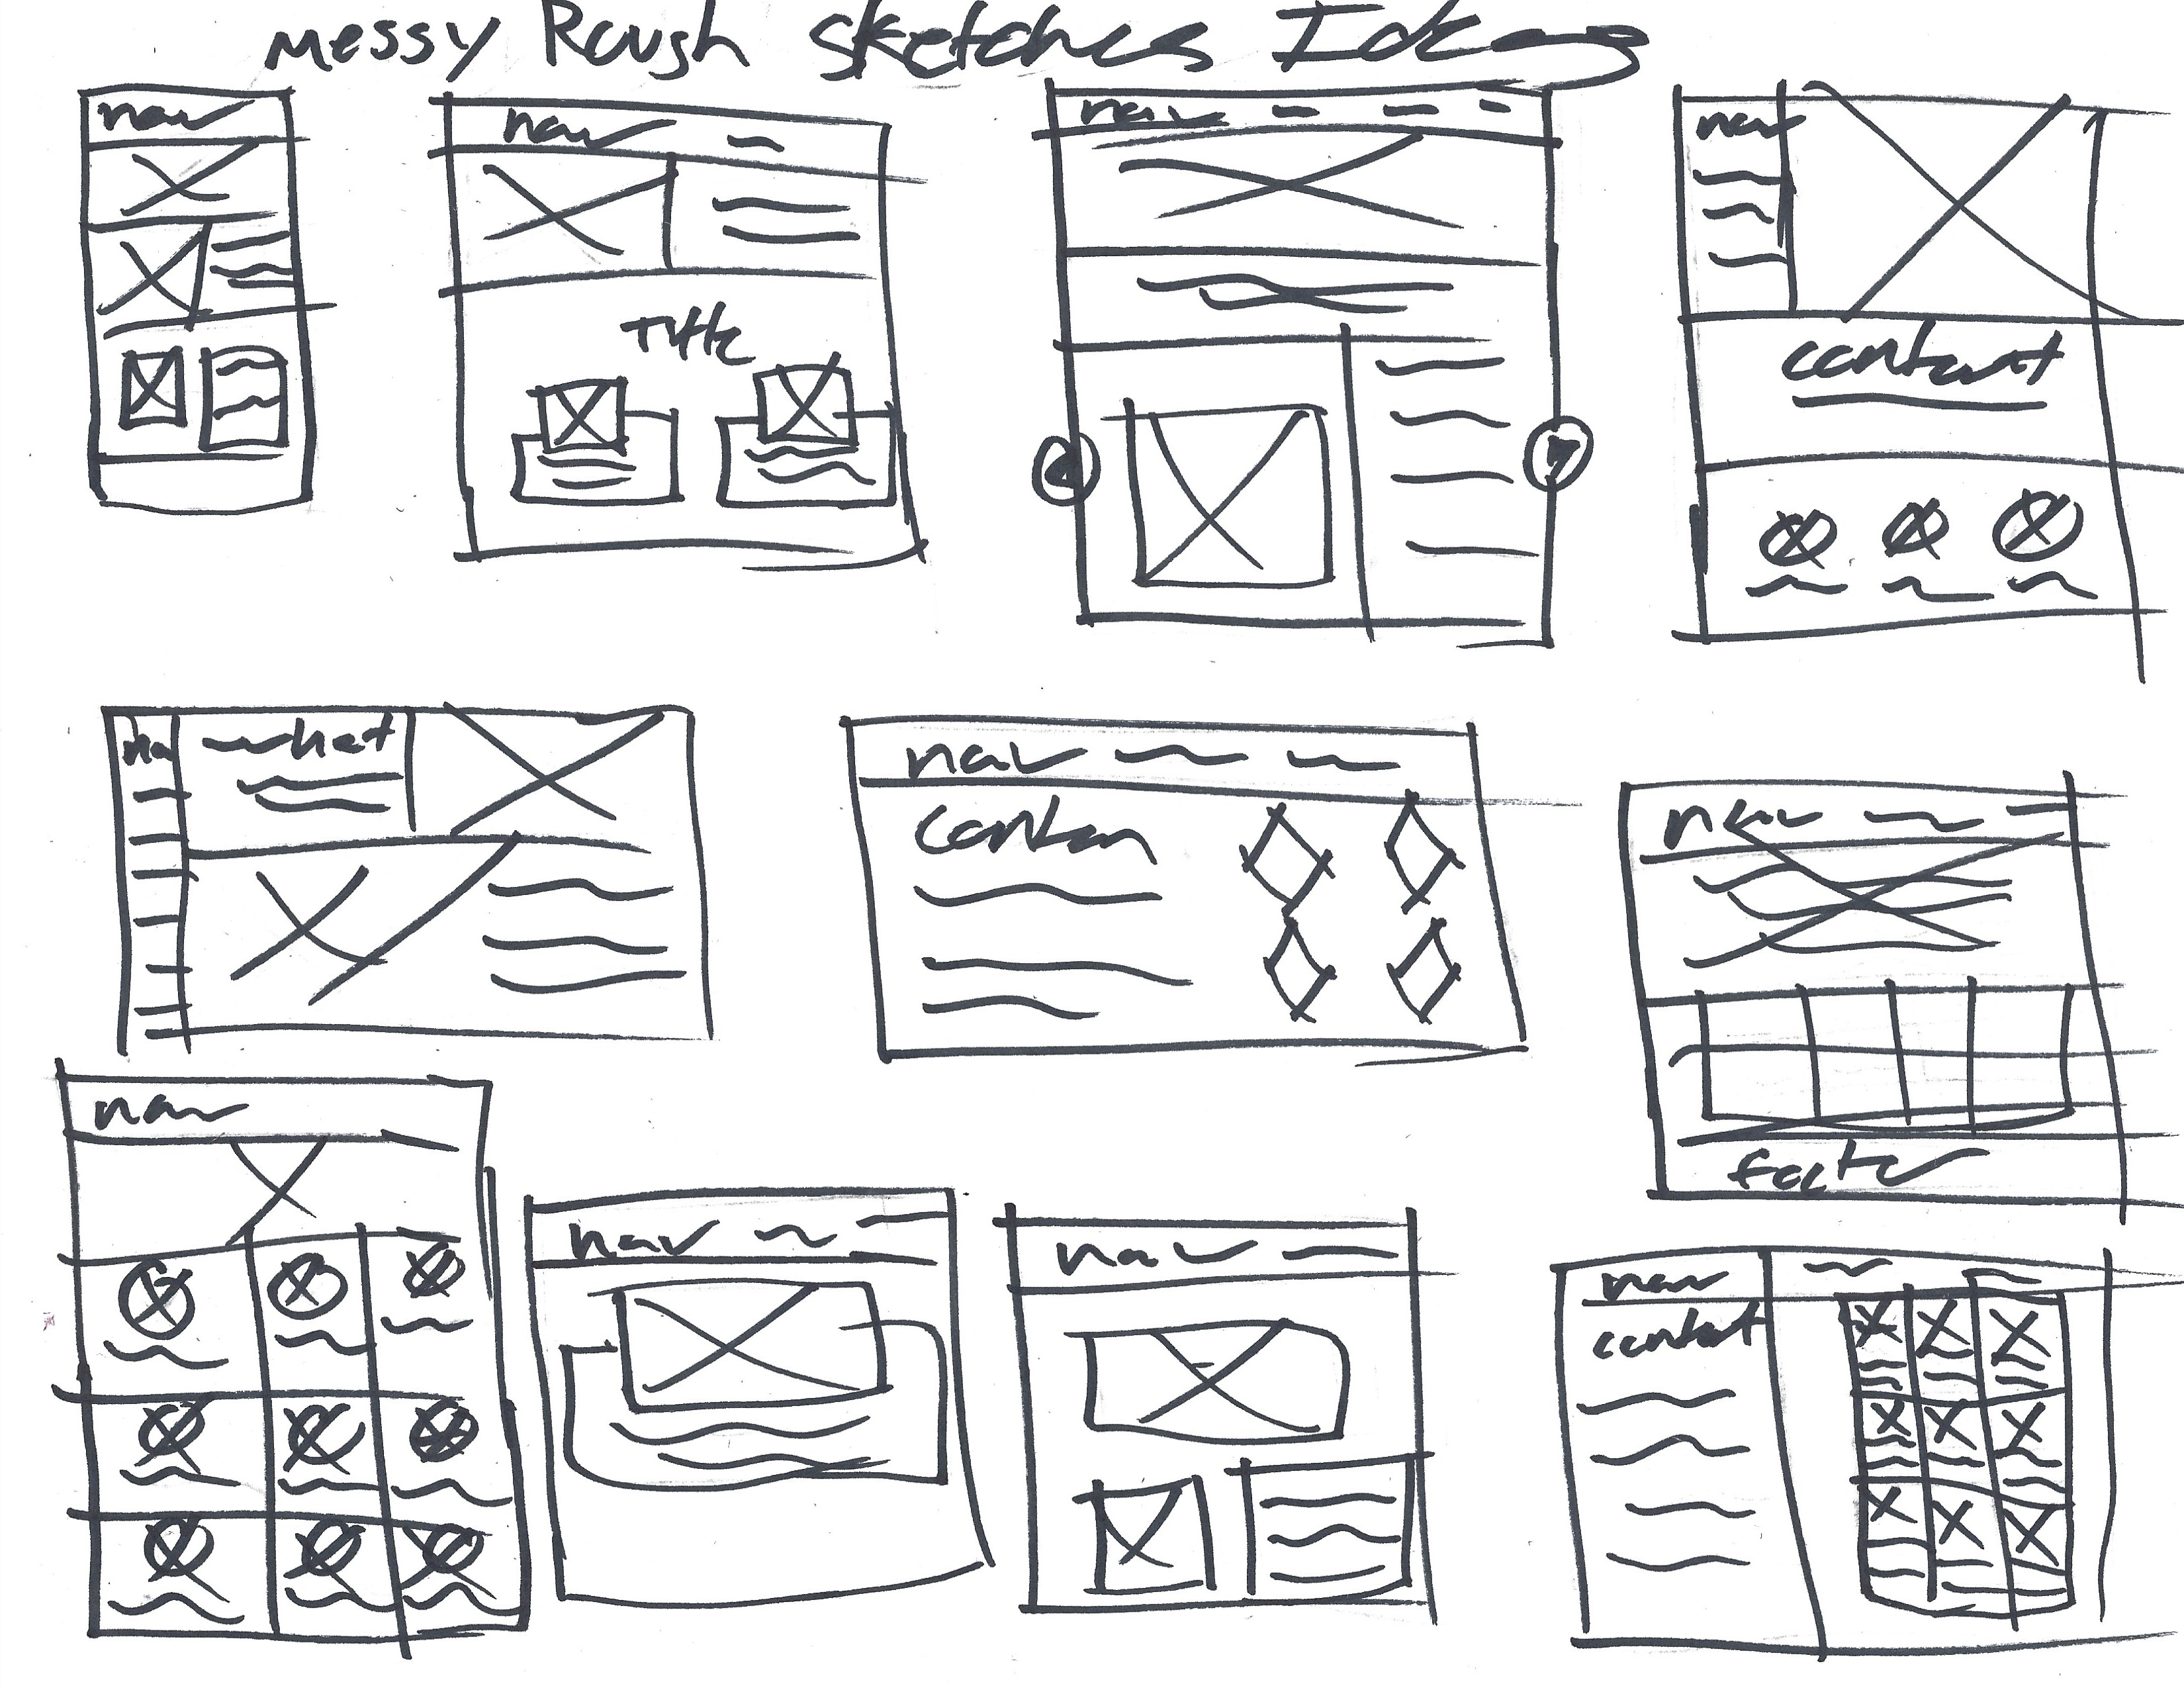 Messy Rough Sketches Ideas
nav
nav
nav
nav
Title
content
na
what
nav
conten
nav
footer
nav
nav
nav
nav
content